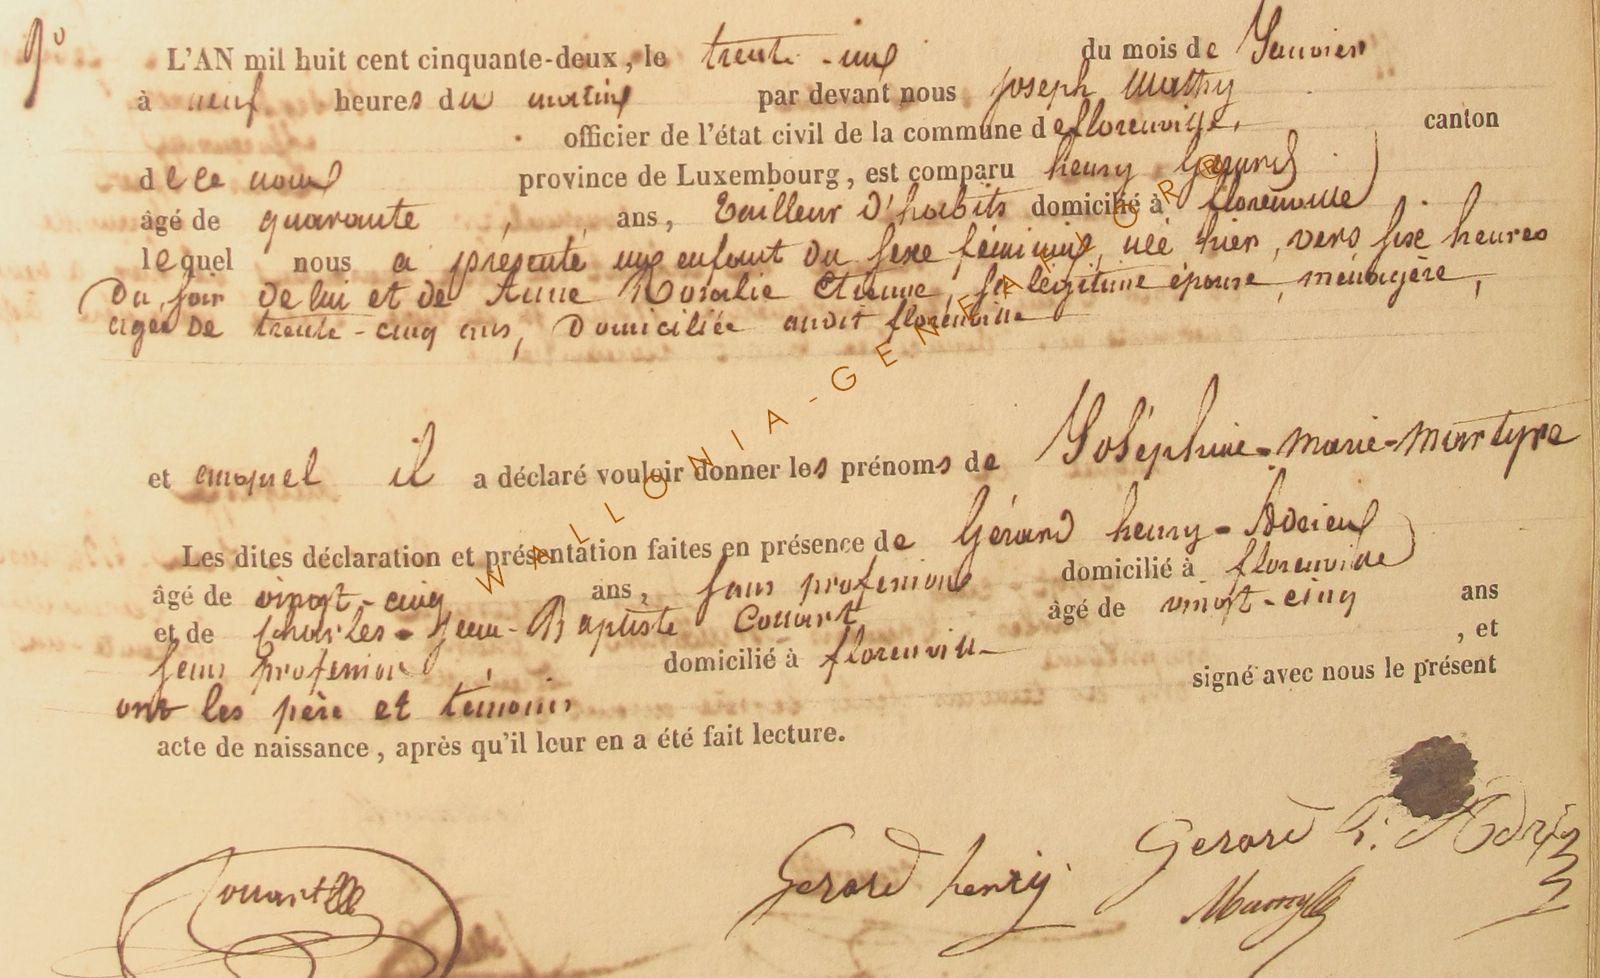 9°
L'AN mil huit cent cinquante-deux, le trente-un du mois de Janvier
à neuf heures du matin par devant nous Joseph Mathy
officier de l'état civil de la commune de florenville, canton
de ce nom province de Luxembourg, est comparu henry Gerard
âgé de quarante ans, tailleur d'habits domicilié à florenville
lequel nous a présenté un enfant du sexe féminin, née hier, vers six heures
du soir de lui et de Anne Rosalie Etienne, sa légitime épouse, ménagère,
agée de trente-cinq ans, domiciliée audit florenville
et auquel il a déclaré vouloir donner les prénoms de Joséphine-Marie-Martyre
Les dites déclaration et présentation faites en présence de Gérard henry-Adrien
âgé de vingt-cinq ans, sans profession domicilié à florenville
et de Charles-Jean-Baptiste Couart âgé de vingt-cinq ans
sans profession, domicilié à florenville, et
ont les père et témoins signé avec nous le présent
acte de naissance, après qu'il leur en a été fait lecture.
Gerard h. Adrien
Couart Gerard henry Mathy
WALLONIA-GENEALOGR